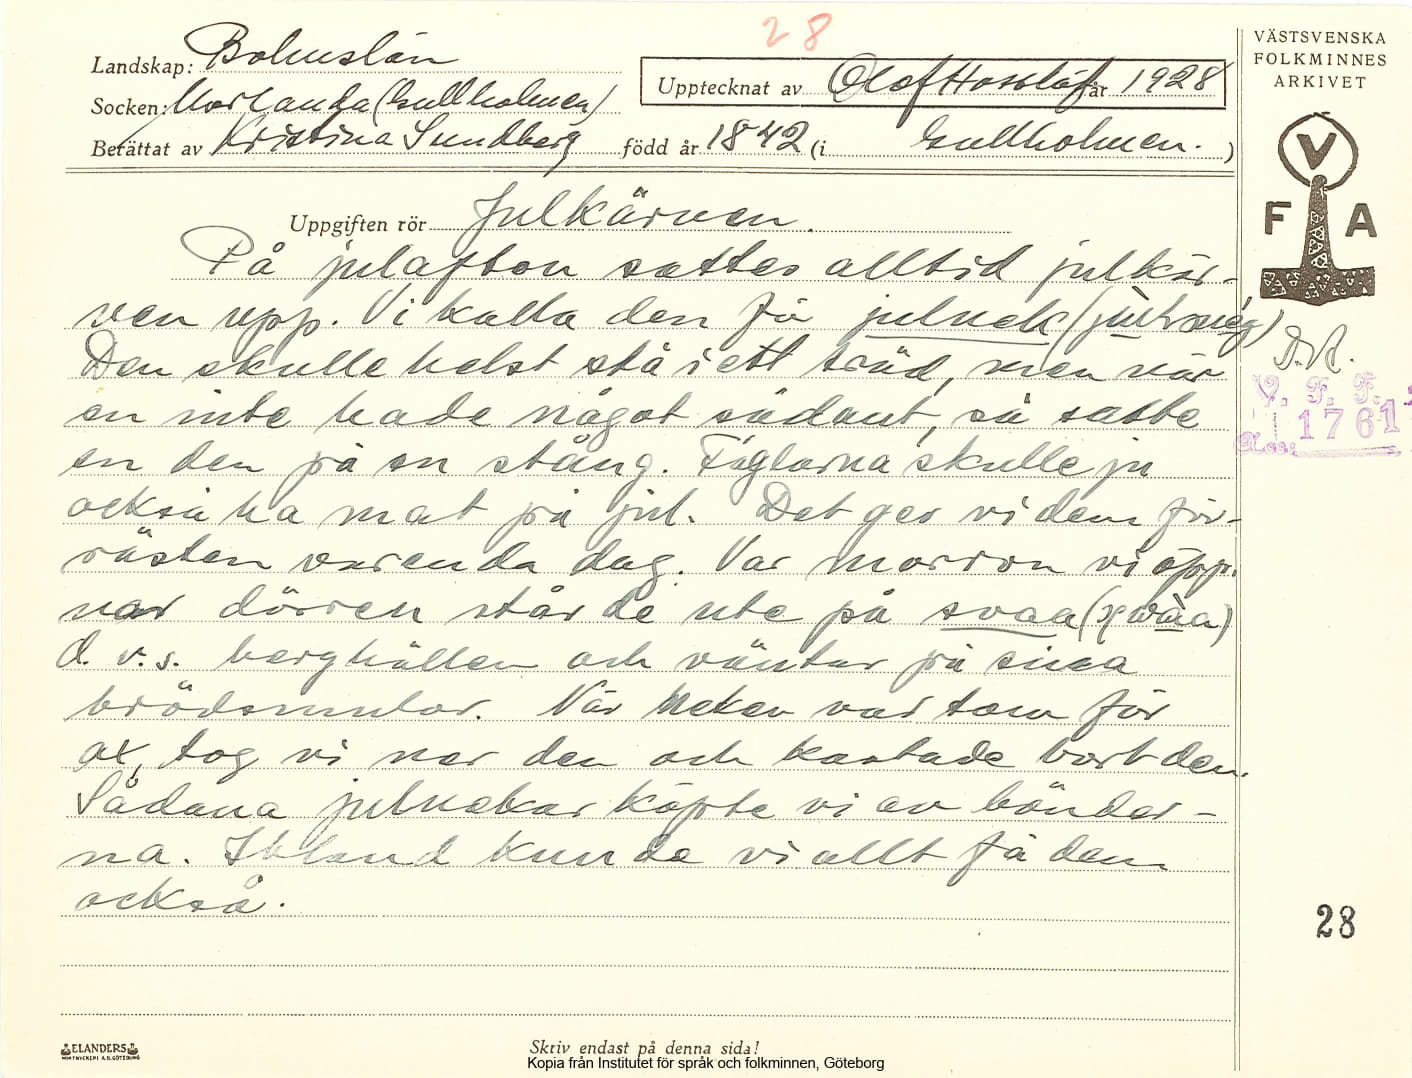 28
VÄSTSVENSKA
FOLKMINNES
ARKIVET
Landskap: Bohuslän
Upptecknat av Olof Hasslöf år 1928
Socken: Morlanda (Gullholmen)
Berättat av Kristina Sundberg född år 1842 (i Gullholmen.)
V
F A
Uppgiften rör Julkärven.
På julafton sattes alltid julkär-
ven upp. Vi kalla den få julnek
Den skulle helst stå i ett träd, men när
en inte hade något sådant, så satte
en den på en stång. Fåglarna skulle ju
också ha mat på jul. Det ger vi dem för-
rästen varenda dag. Var morron vi öpp-
nar dörren står de ute på svaa
d.v.s. berghällen och väntar på sina
brödsmulor. När neken var tom för
ax, tog vi ner den och kastade bort den.
Sådana julnekar köpte vi av bönder-
na. Ibland kunde vi allt få dem
också.
V. F. F.
1761
28
ELANDERS
Skriv endast på denna sida!
Kopia från Institutet för språk och folkminnen, Göteborg